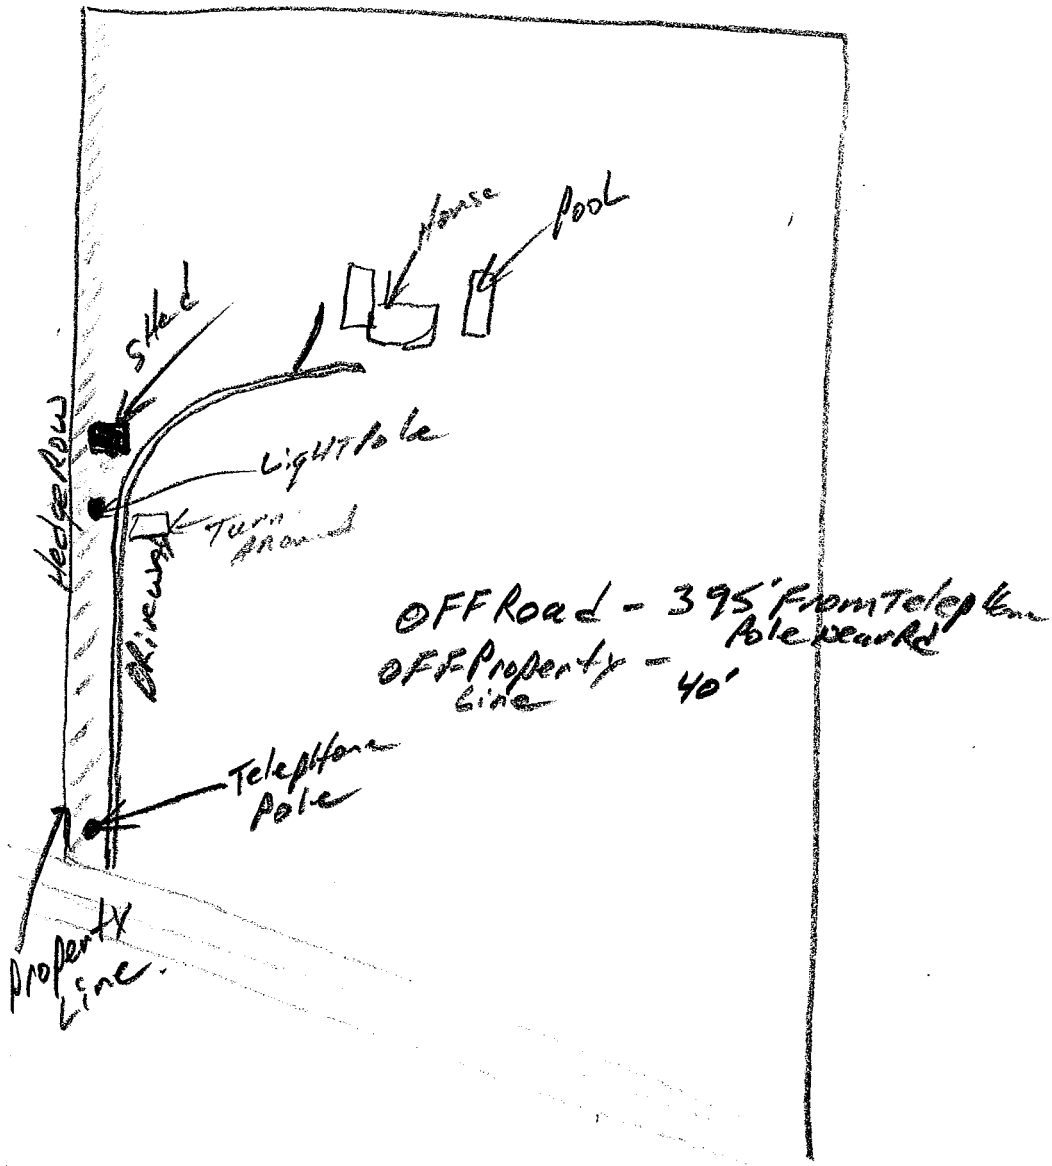 House
Pool
SHed
HedgeRow
LigHTPole
Turn
Around
Driveway
OFFRoad - 395' FromTelephone
Pole near Rd
OFFProperty - 40'
Line
TelepHone
Pole
Property
Line.